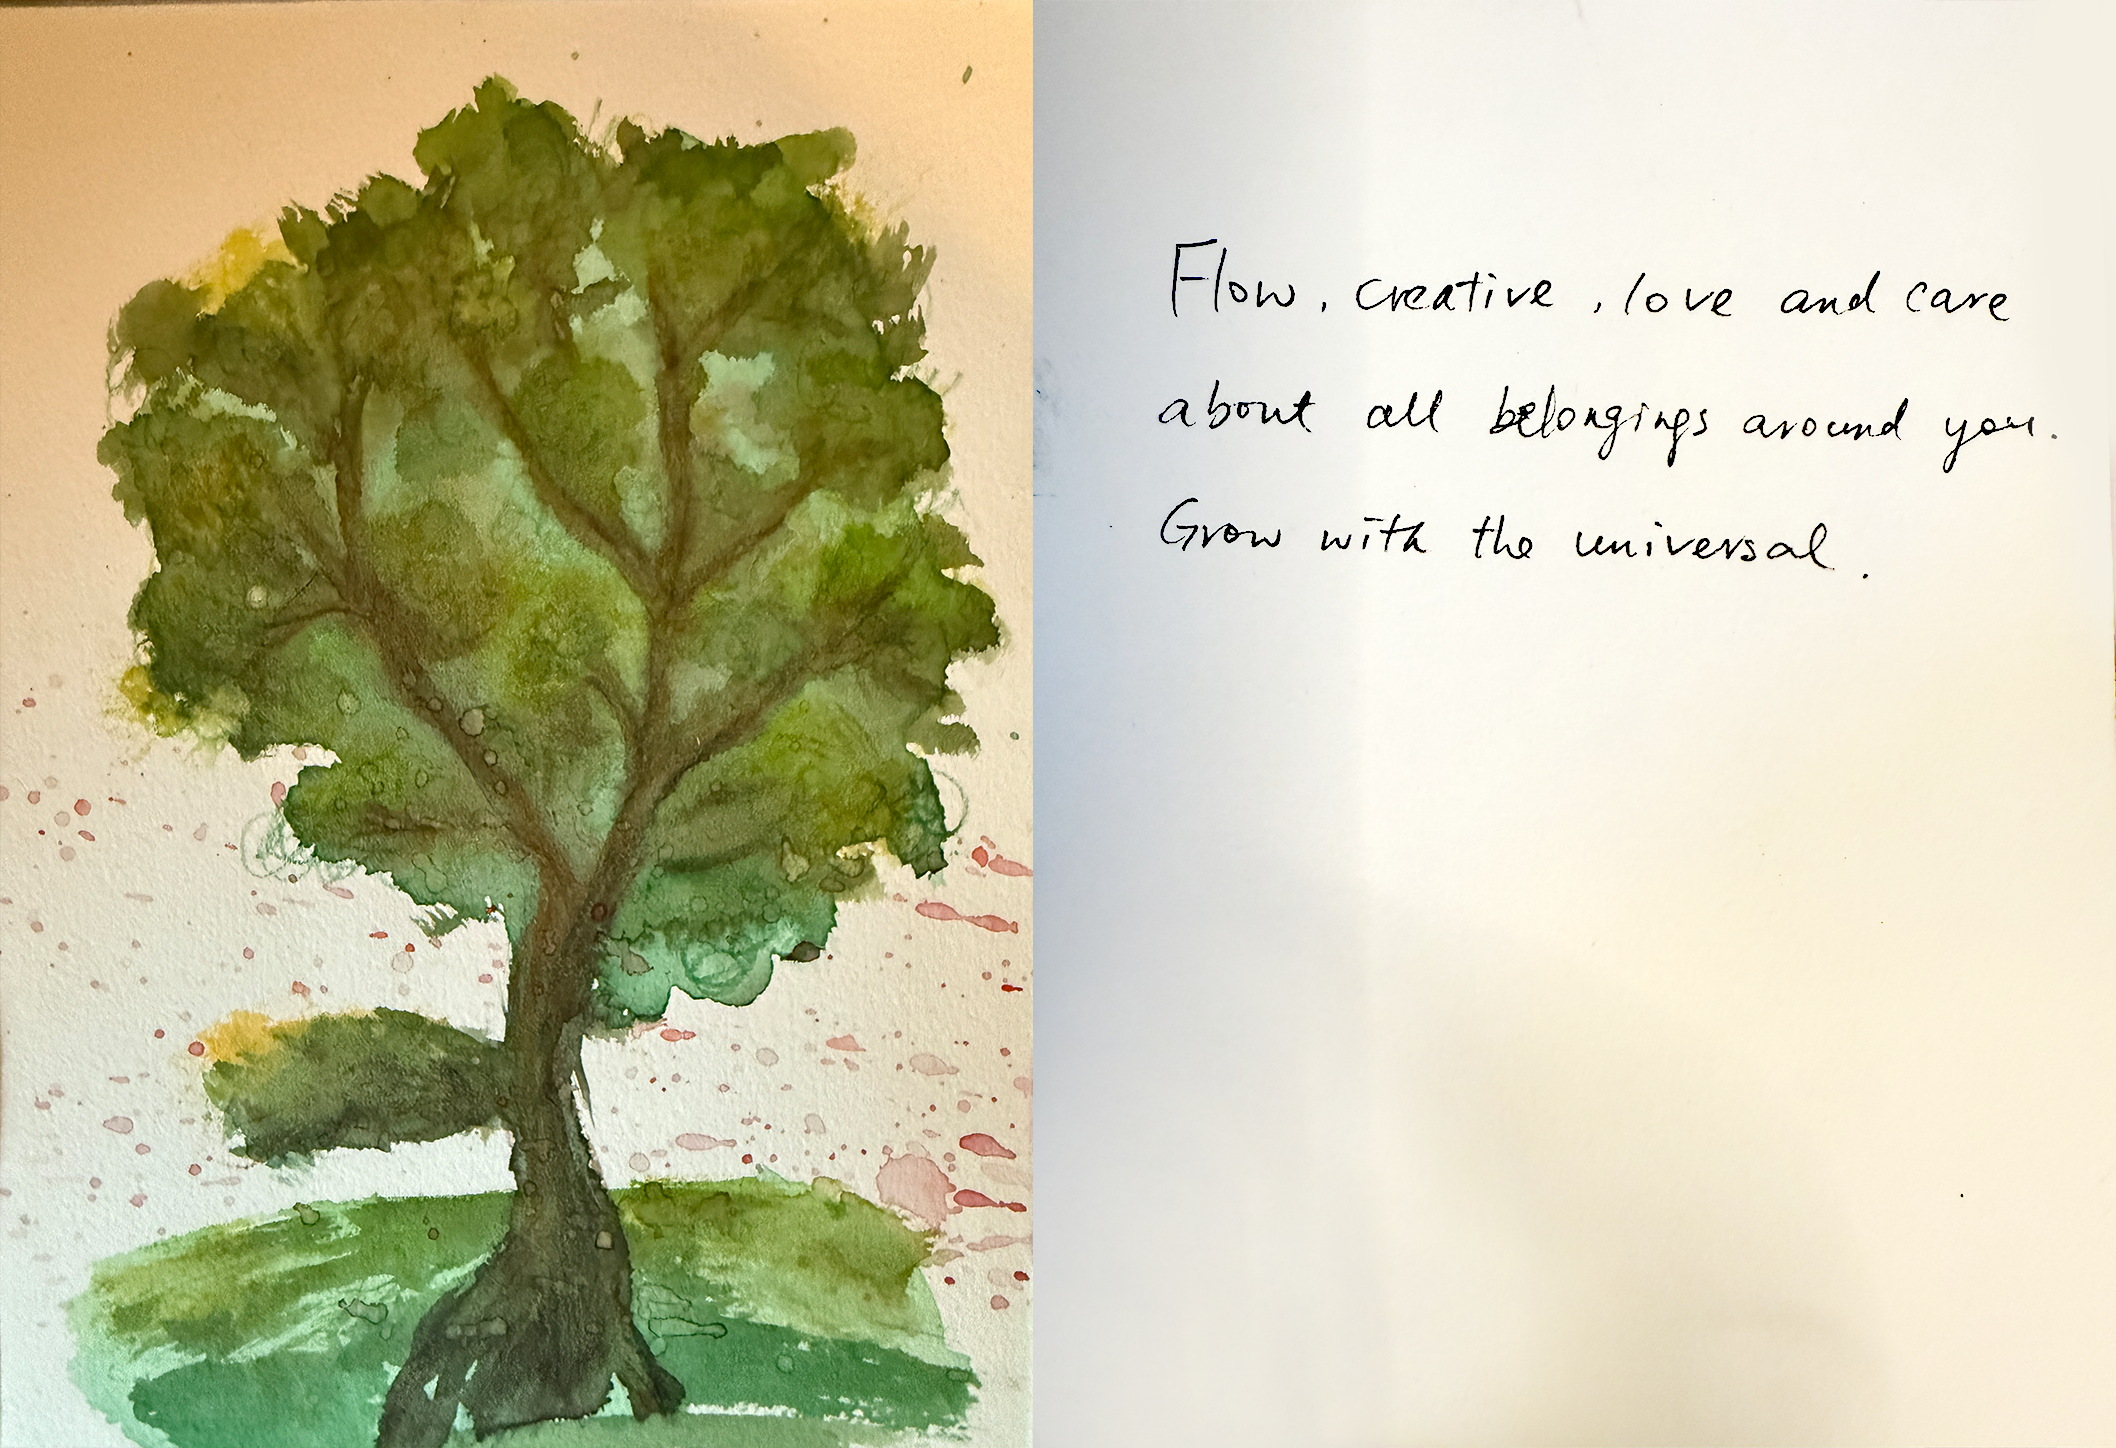 Flow, creative, love and care
about all belongings around you.
Grow with the universal.